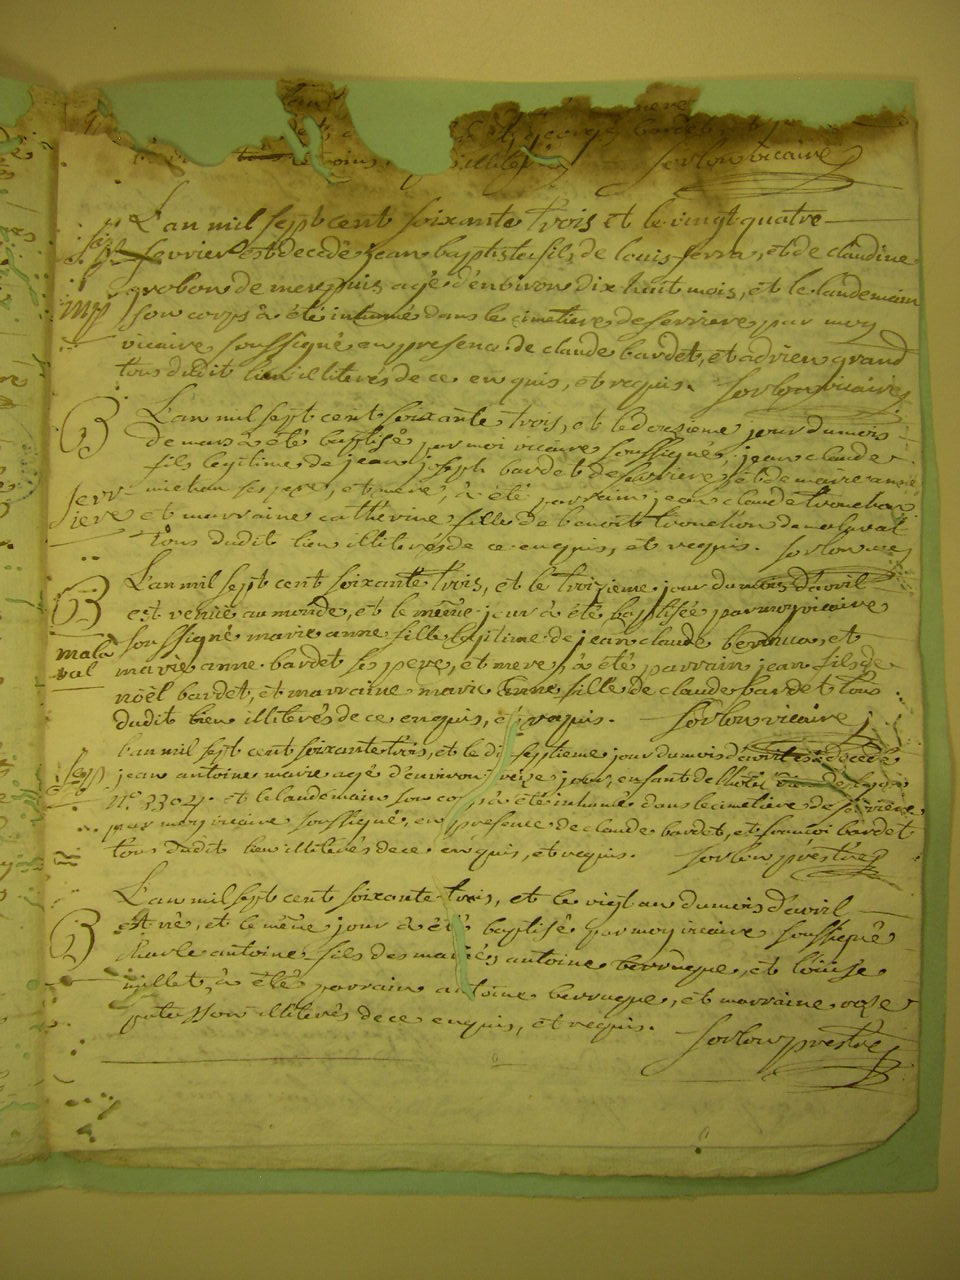 george bardet
Sorlon vicaire
L'an mil sept cent soixante trois et le vingt quatre
fevrier est decedé jean baptiste fils de louis ferra, et de claudine
grobon de agé d'environ dix huit mois, et le landemain
son corps à été inhumé dans le cimetiere de serriere par moy
vicaire soussigné en presence de claude bardet, et adrien grand
tous dudit lieu illiterés de ce enquis, et requis. Sorlon vicaire
B
L'an mil sept cent soixante trois, et le douzieme jour du mois
de mars à été baptisé par moi vicaire soussigné, jean claude
fils legitime de jean joseph bardet de serriere, et de marie anne
michon ses pere, et mere, à été parrain jean claude tronchon
Serr
iere
et marraine catherine fille de benoit tronchon de malaval
tous dudit lieu illiterés de ce enquis, et requis. Sorlon
B
L'an mil sept cent soixante trois, et le troizieme jour du mois d'avril
est venüe au monde, et le même jour à été baptisée par moy vicaire
mala
val
soussigné marie anne fille legitime de jean claude, et
marie anne bardet ses pere, et mere, à été parrain jean fils de
noël bardet, et marraine marie fille de claude bardet tous
dudit lieu illiterés de ce enquis, et requis. Sorlon vicaire
L'an mil sept cent soixante trois, et le dix septieme jour du mois d'avril est decedé
jean antoine marie agé d'environ jour, enfant de
n° 3302. et le landemain son corps à été inhumé dans le cimetiere de serriere
par moy vicaire soussigné, en presence de claude bardet, et bardet
tous dudit lieu illiterés de ce enquis, et requis. Sorlon prestre
L'an mil sept cent soixante trois, et le vigt du mois d'avril
B
est né, et le même jour à été baptisé par moy vicaire soussigné
charle antoine fils des mariés antoine berrueye, et loüise
millet, à été parrain antoine berrueye, et marraine
illiterés de ce enquis, et requis.
Sorlon prestre